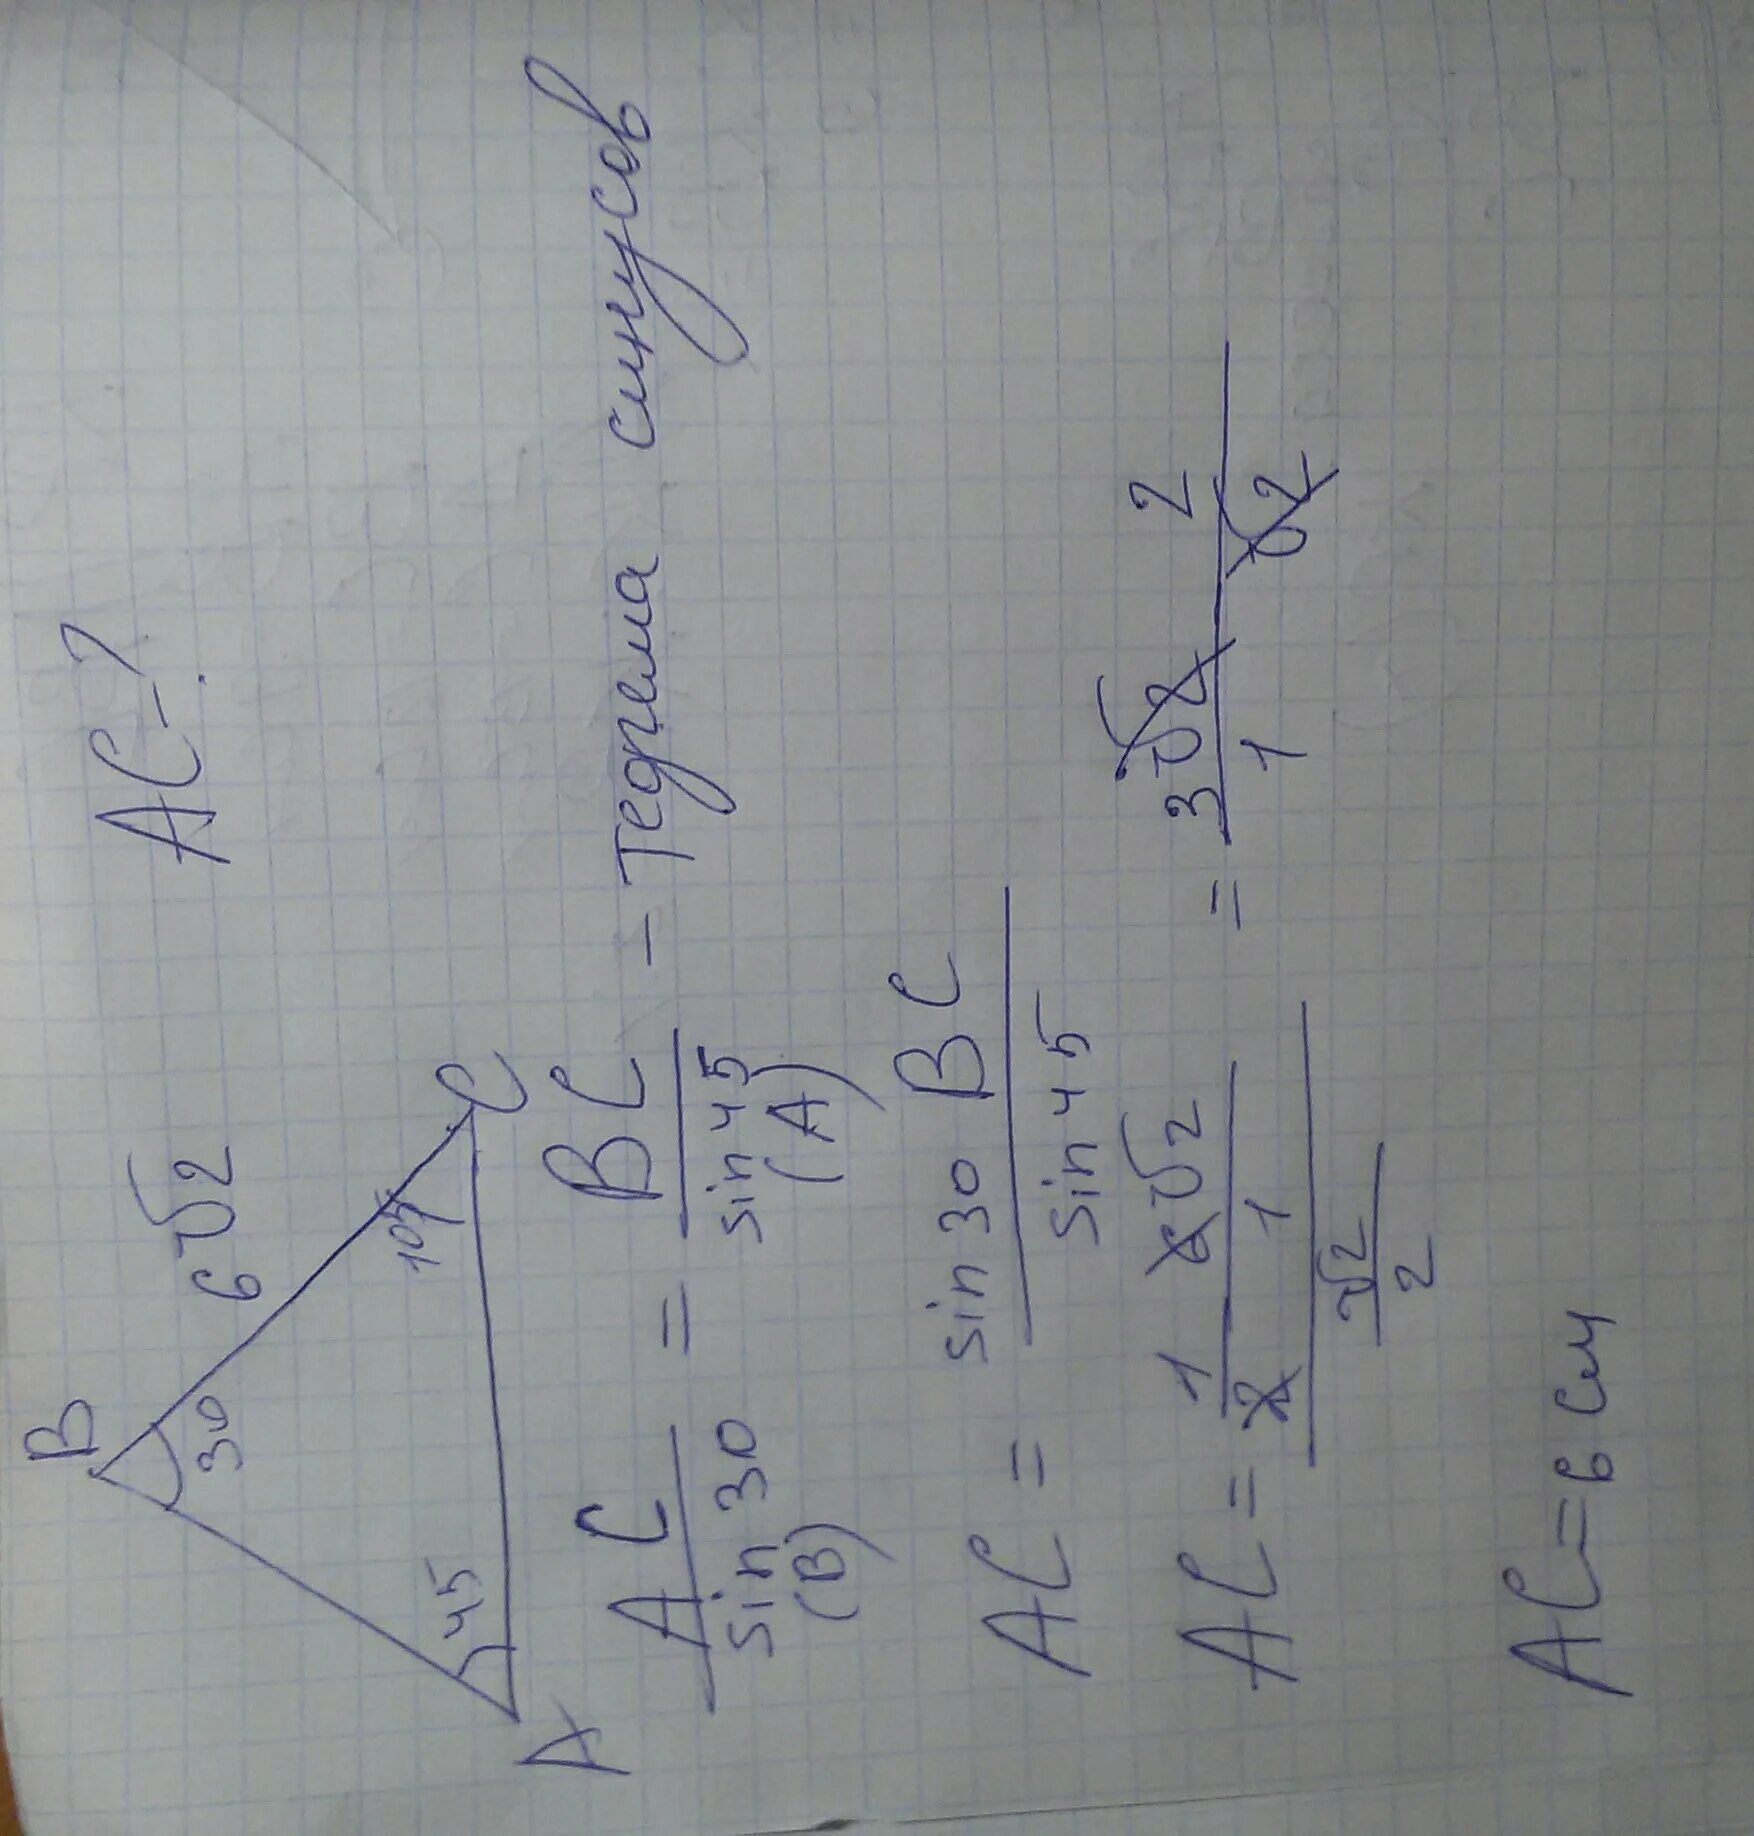 AC-?
B
6√2
30
45
105
A
C
AC/sin 30 (B) = BC/sin 45 (A) - Теорема синусов
AC = sin 30 BC / sin 45
AC = (1/2 6√2/1) / (√2/2) = 3√2 2 / 1 √2
AC = 6 см